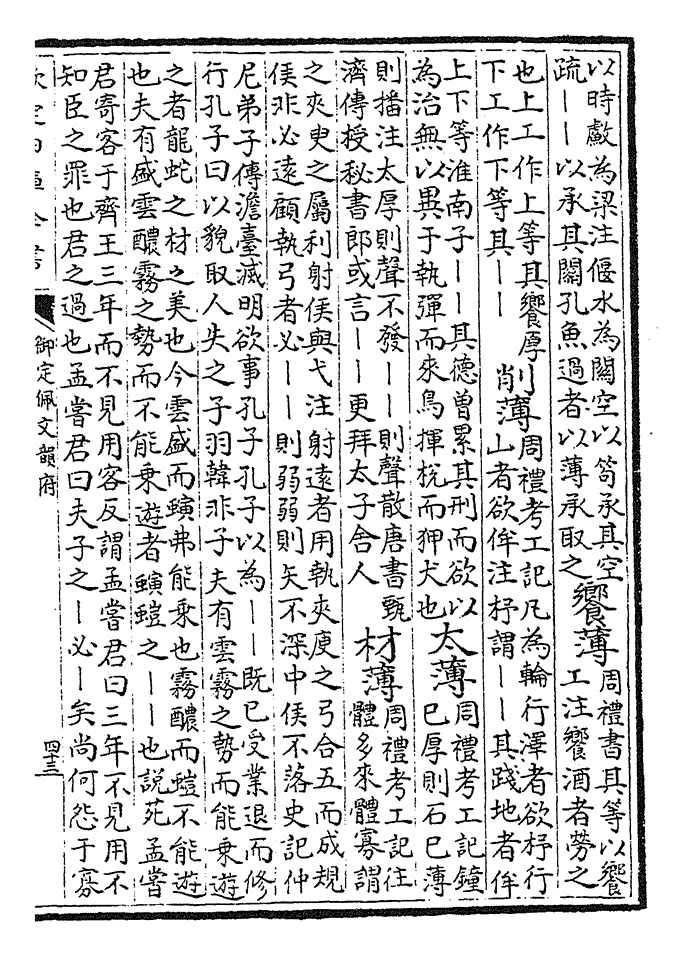 以時㪫為梁注偃水為關空以笱承其空
疏——以承其關孔魚過者以薄承取之
饗薄
周禮書其等以饗
工注饗酒者勞之
也上工作上等其饗厚
下工作下等其——
削薄
周禮考工記凡為輪行澤者欲杼行
山者欲侔注杼謂——其踐地者侔
上下等淮南子——其德曾累其刑而欲以
為治無以異于執彈而來鳥揮梲而狎犬也
太薄
周禮考工記鐘
已厚則石已薄
則播注太厚則聲不發——則聲散唐書甄
濟傳授秘書郎或言——更拜太子舍人
材薄
周禮考工記往
體多來體寡謂
之夾臾之屬利射侯與弋注射遠者用執夾庾之弓合五而成規
侯非必遠顧執弓者必——則弱弱則矢不深中侯不落史記仲
尼弟子傳澹臺滅明欲事孔子孔子以為——既已受業退而修
行孔子曰以貌取人失之子羽韓非子夫有雲霧之勢而能乗遊
之者龍蛇之材之美也今雲盛而螾弗能乗也霧醲而螘不能遊
也夫有盛雲醲霧之勢而不能乗遊者螾螘之——也說苑孟嘗
君寄客于齊王三年而不見用客反謂孟嘗君曰三年不見用不
知臣之罪也君之過也孟嘗君曰夫子之—必—矣尚何怨于寡
欽定四庫全書
御定佩文韻府
四十三